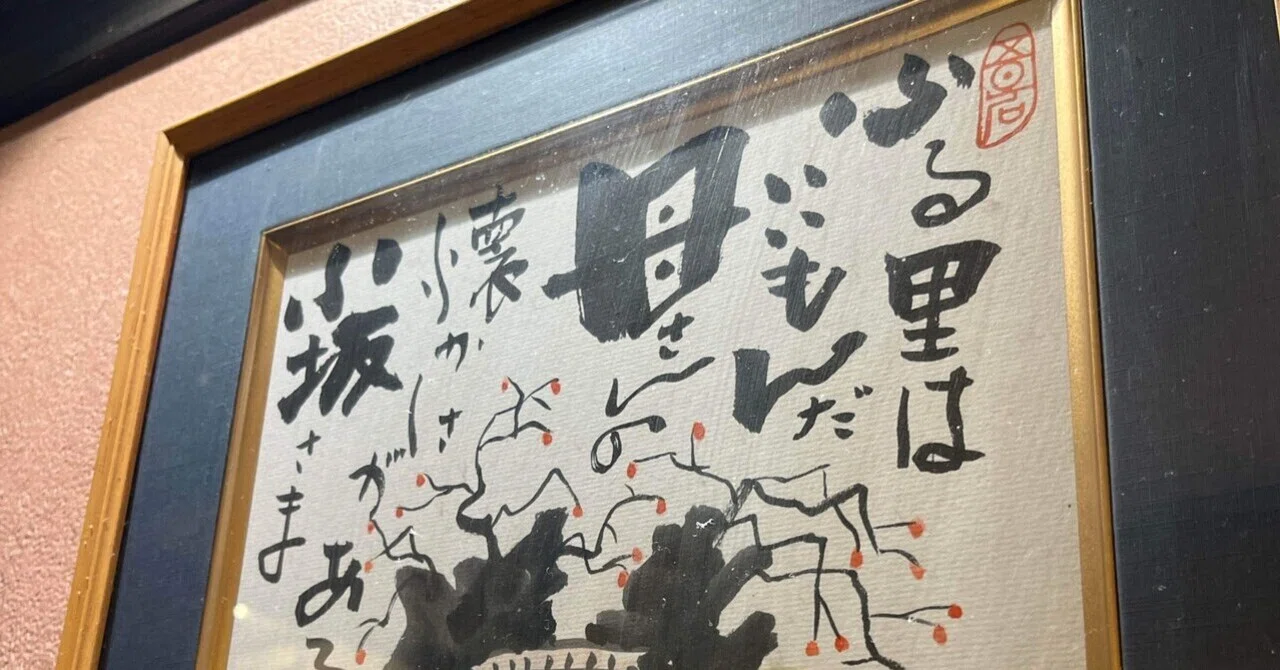 ふる里は
いいもんだ
母さんの
懐かしさが
あ
小坂さま